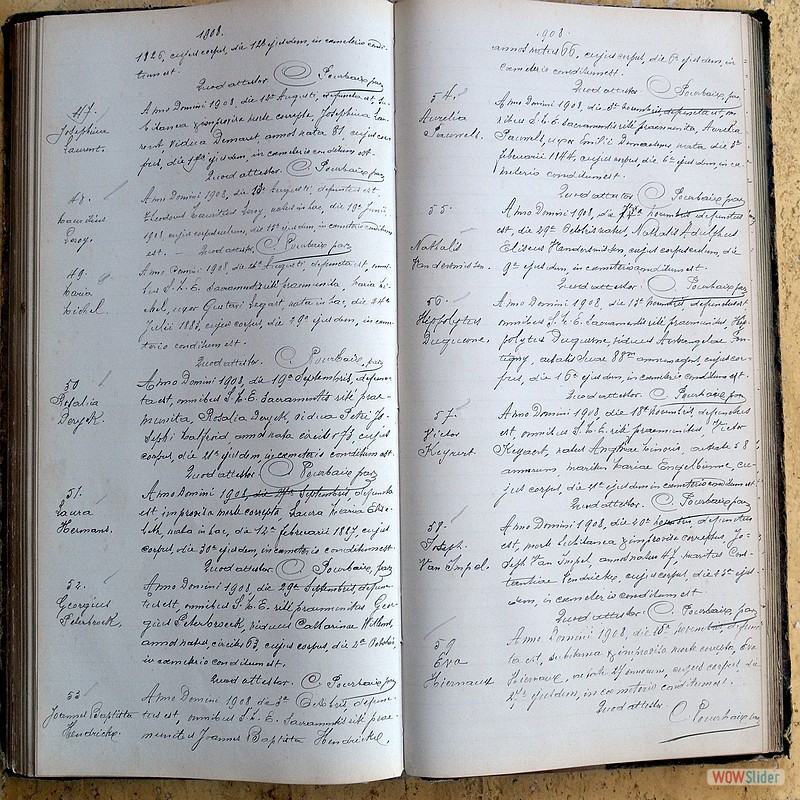 1908.
1826, cujus corpus, die 12ª ejusdem, in cœmeterio condi-
tum est.
Quod attestor C Pourbaix, par
47.
Josephina
Laurent.
Anno Domini 1908, die Augusti, defuncta est, su-
bitanea & improvisa morte correpta Josephina Lau-
rent, vidua Demaret, annos nata 81, cujus cor-
pus, die ejusdem, in cœmeterio conditum est.
Quod attestor. C. Pourbaix, par
48.
Mauritius
Leroy.
Anno Domini 1908, die Augusti, defunctus est
Mauritius Leroy, natus in hac, die 19ª Junii
1908, cujus corpusculum, die 15ª ejusdem, in cœmeterio conditum
est. — Quod attestor. C. Pourbaix par
49.
Maria
Michel.
Anno Domini 1908, die Augusti, defuncta est, omni-
bus S. M. E. Sacramentis ritè præmunita, Maria Mi-
chel, uxor Gustavi Legart, nata in hac, die 24ª
Julii 1881, cujus corpus, die 29ª ejusdem, in cœme-
terio conditum est.
Quod attestor. C Pourbaix, par
50
Rosalia
Deryck.
Anno Domini 1908, die 19ª Septembris, defunc-
ta est, omnibus S. M. E. Sacramentis ritè præ-
munita, Rosalia Deryck, vidua Petri Jo-
sephi Walfroid annos nata circiter 73, cujus
corpus, die 21ª ejusdem in cœmeterio conditum est.
Quod attestor C Pourbaix par
51.
Laura
Hermans.
Anno Domini 1908, die Septembris, defuncta
est improvisa morte correpta Laura Maria Elisa-
beth, nata in hac, die 12ª februarii 1887, cujus
corpus, die 30ª ejusdem in cœmeterio conditum est.
Quod attestor C. Pourbaix, par
52.
Georgius
Peterbroeck.
Anno Domini 1908, die 29ª Septembris, defunc-
tus est, omnibus S. M. E. ritè præmunitus Geor-
gius Peterbroeck, viduus Catharinæ Willems,
annos natus, circiter 63, cujus corpus, die 2ª Octobris,
in cœmeterio conditum est.
Quod attestor. C Pourbaix, par
53
Joannes Baptista
Hendrickx.
Anno Domini 1908 die 3ª Octobris, defunc-
tus est, omnibus S. M. E. Sacramentis ritè præ-
munitus Joannes Baptista Hendrickx,
1908.
annos natus 66, cujus corpus, die 6ª ejusdem, in
cœmeterio conditum est.
Quod attestor. C Pourbaix, par
54.
Aurelia
Pauwels.
Anno Domini 1908, die novembris, defuncta est, om-
nibus S. M. E. Sacramentis ritè præmunita, Aurelia
Pauwels, uxor nata die 3ª
februarii 1844, cujus corpus, die 6ª ejusdem, in cœ-
meterio conditum est.
Quod attestor C Pourbaix par
55.
Nathalis
Vandersmissen.
Anno Domini 1908, die novembris defunctus
est, die 29ª Octobris natus, Nathalis Adulphus
Eliseus Vandersmissen, cujus corpusculum, die
9ª ejusdem, in cœmeterio conditum est.
Quod attestor C Pourbaix par
56.
Hippolytus
Duquesne.
Anno Domini 1908, die 13ª novembris defunctus est
omnibus S. M. E. Sacramentis ritè præmunitus, Hip-
polytus Duquesne, viduus
ætatis suæ 88 anno cujus cor-
pus, die 16ª ejusdem, in cœmeterio conditum est.
Quod attestor C. Pourbaix, par
57.
Victor
Keysert
Anno Domini 1908, die 18ª novembris, defunctus
est, omnibus S. M. E. ritè præmunitus, Victor
Keysaert, natus ætate 58
annorum, maritus Mariæ cu-
jus corpus, die ejusdem, in cœmeterio conditum est
Quod attestor. C Pourbaix, par
58.
Joseph.
Van Impel.
Anno Domini 1908, die 20ª novembris, defunctus
est, morte subitanea & improvisa correptus, Jo-
seph Van Impel, annos natus 47 maritus Cons-
tantiæ Vendrickx, cujus corpus die ejus-
dem, in cœmeterio conditum est.
Quod attestor C Pourbaix, par
59
Eva
Hiernaux
Anno Domini 1908, die novembris, defunc-
ta est, subitanea & improvisa morte correpta, Eva
Hiernaux, ætate 27 annorum, cujus corpus, die
ejusdem, in cœmeterio conditum est.
Quod attestor.
C Pourbaix par
WOWSlider